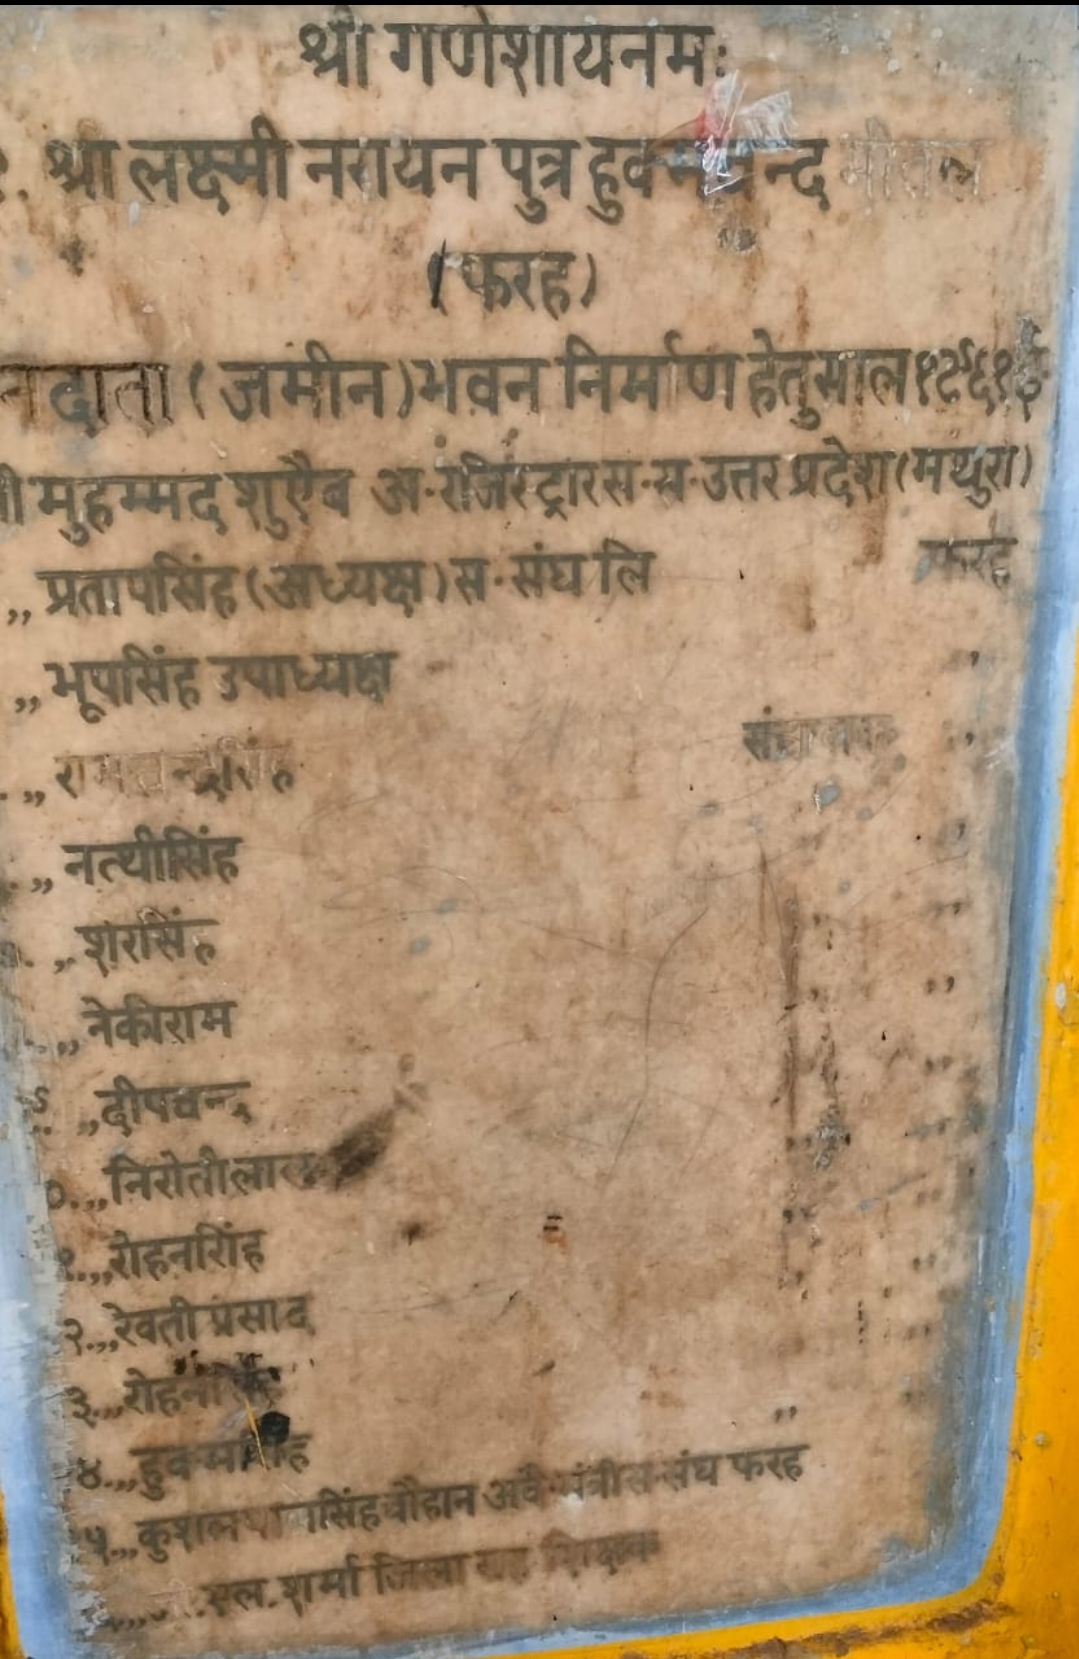 श्री गणेशायनमः
१. श्री लक्ष्मी नरायन पुत्र हुकमचन्द
(फरह)
दाता (जमीन) भवन निर्माण हेतु साल १९६१ई
श्री मुहम्मद शुऐव अ॰ रजिस्ट्रार स॰ स॰ उत्तर प्रदेश (मथुरा)
,, प्रतापसिंह (अध्यक्ष) स॰ संघ लि फरह
,, भूपसिंह उपाध्यक्ष ,,
,, रामचन्द्रसिंह ,,
,, नत्थीसिंह ,,
,, शेरसिंह ,,
,, नेकीराम ,,
,, दीपचन्द ,,
०. ,, निरोतीलाल ,,
१. ,, रोहनसिंह ,,
२. ,, रेवती प्रसाद ,,
३. ,, ,,
४. ,, हुकमसिंह ,,
५. ,, कुशलपालसिंह चौहान अवै॰ मंत्री स॰ संघ फरह
एल. शर्मा जिला